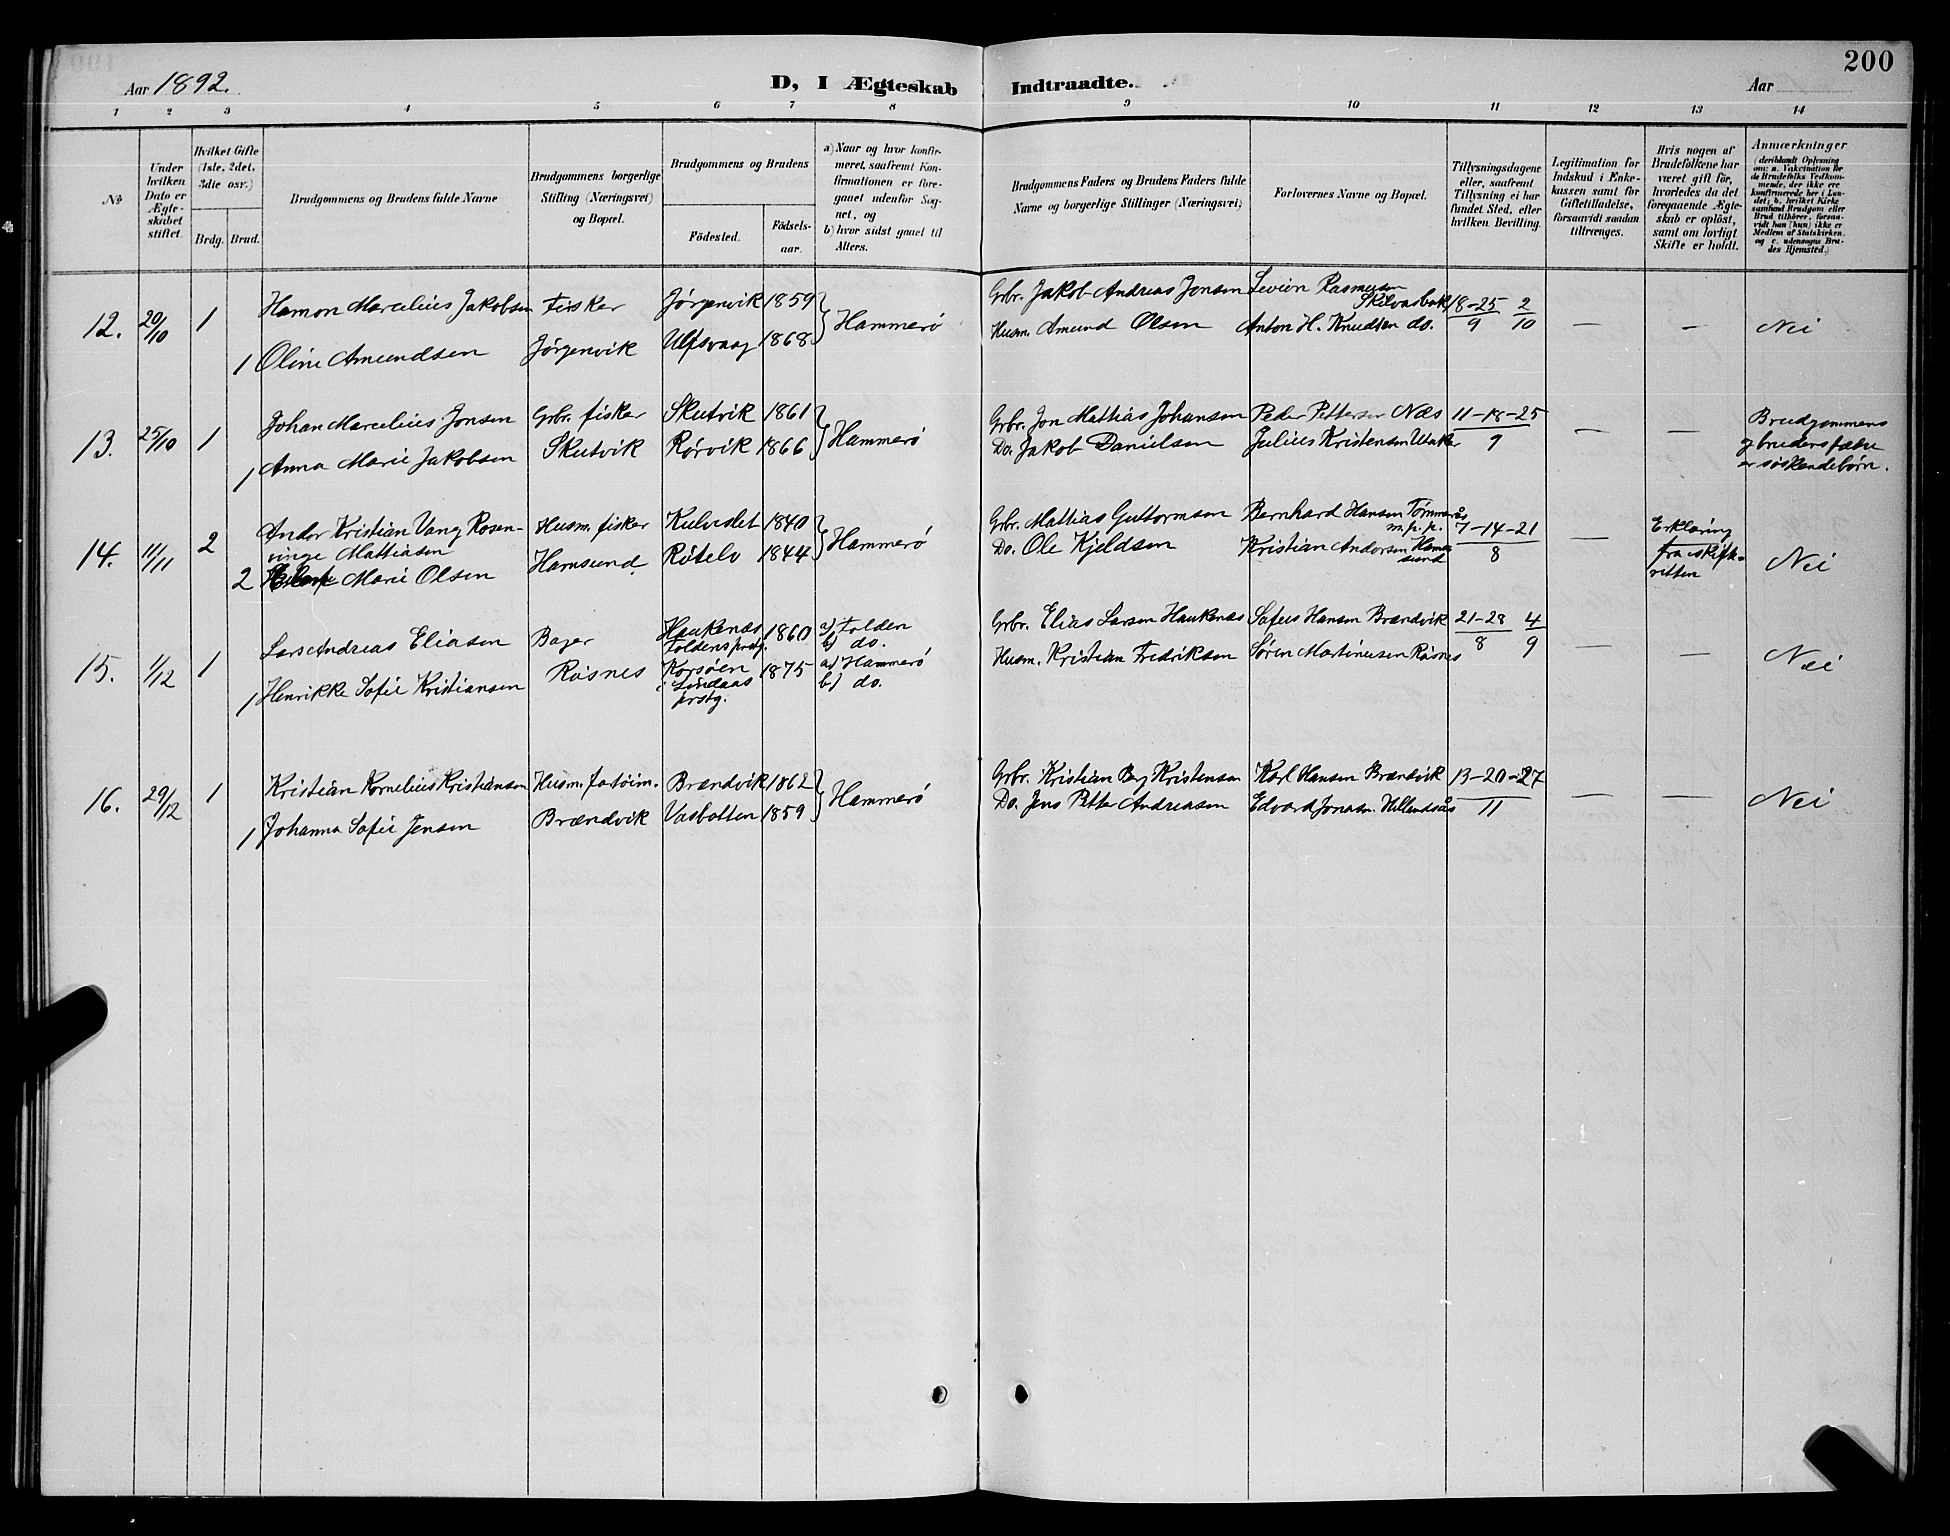 200
Aar 1892.
D, I Ægteskab Indtraadte.
Aar
1 2 3 4 5 6 7 8 9 10 11 12 13 14
№
Under hvilken Dato er Ægteskabet stiftet.
Hvilket Gifte (1ste, 2det, 3die osv.)
Brdg. Brud.
Brudgommens og Brudens fulde Navne
Brudgommens borgerlige Stilling (Næringsvei) og Bopæl.
Brudgommens og Brudens
Fødested. Fødselsaar.
a) Naar og hvor konfirmeret, saafremt Konfirmationen er foregaaet udenfor Sognet, og
b) hvor sidst gaaet til Alters.
Brudgommens Faders og Brudens Faders fulde Navne og borgerlige Stillinger (Næringsvei)
Forlovernes Navne og Bopæl.
Tillysningsdagene eller, saafremt Tillysning ei har fundet Sted, efter hvilken Bevilling.
Legitimation for Indskud i Enkekassen samt for Giftetilladelse, forsaavidt saadan tiltrænges.
Hvis nogen af Brudefolkene har været gift før, hvorledes da det foregaaende Ægteskab er opløst, samt om lovligt Skifte er holdt.
Anmærkninger (deriblandt Oplysning om: a. Vakcination for de Brudefolks Vedkommende, der ikke ere konfirmerede her i Landet; b. hvilket Kirkesamfund Brudgom eller Brud tilhører, forsaavidt han (hun) ikke er Medlem af Statskirken, og c. udensogns Brudes Hjemsted.)
12. 20/10 1 Hamon Marcelius Jakobsen Fisker Jørgenvik 1859 } Hammerø Grbr. Jakob Andreas Jensen Sevien Rasmusen Skilvasbak 18-25/9 2/10 — — Nei
1 Oline Amundsen Jørgenvik Ulfsvaag 1868 Husm. Amund Olsen Anton H. Knudsen do.
13. 25/10 1 Johan Marcelius Jonsen Grbr. fisker Skutvik 1861 } Hammerø Grbr. Jon Mathias Johansen Peder Pettersen Næs 11-18-25/9 — — Brudgommens
1 Anna Marie Jakobsen Skutvik Rørvik 1866 Do. Jakob Danielsen Julius Kristensen
og brudens fædre
er søskendebørn.
14. 11/11 2 Andor Kristian Vang Rosen- Husm. fisker 1840 } Hammerø Grbr. Mathias Guttormsen Bernhard Hansen Tømmerås m.p.p. 7-14-21/8 — Erklæring
vinge Mathiasen
fra skifte-
retten Nei
2 Marie Olsen Hamsund Røtelv 1844 Do. Ole Kjeldsen Kristian Andersen Hamsund
15. 1/12 1 Lars Andreas Eliasen Bager Haukenæs Foldens prstg. 1860 a) Folden b) do. Grbr. Elias Larsen Haukenæs Sofus Hansen Brændvik 21-28/8 4/9 — — Nei
1 Henrikke Sofie Kristiansen Røsnes Korsøen i Lindaas prstg. 1875 a) Hammerø b) do. Husm. Kristian Fredriksen Søren Martinusen Røsnes
16. 29/12 1 Kristian Kornelius Kristiansen Husm. Brændvik 1862 } Hammerø Grbr. Kristian Berg Kristensen Karl Hansen Brændvik 13-20-27/11 — — Nei
1 Johanna Sofie Jensen Brændvik Vasbotten 1859 Do. Jens Petter Andreasen Edvard Jonasen